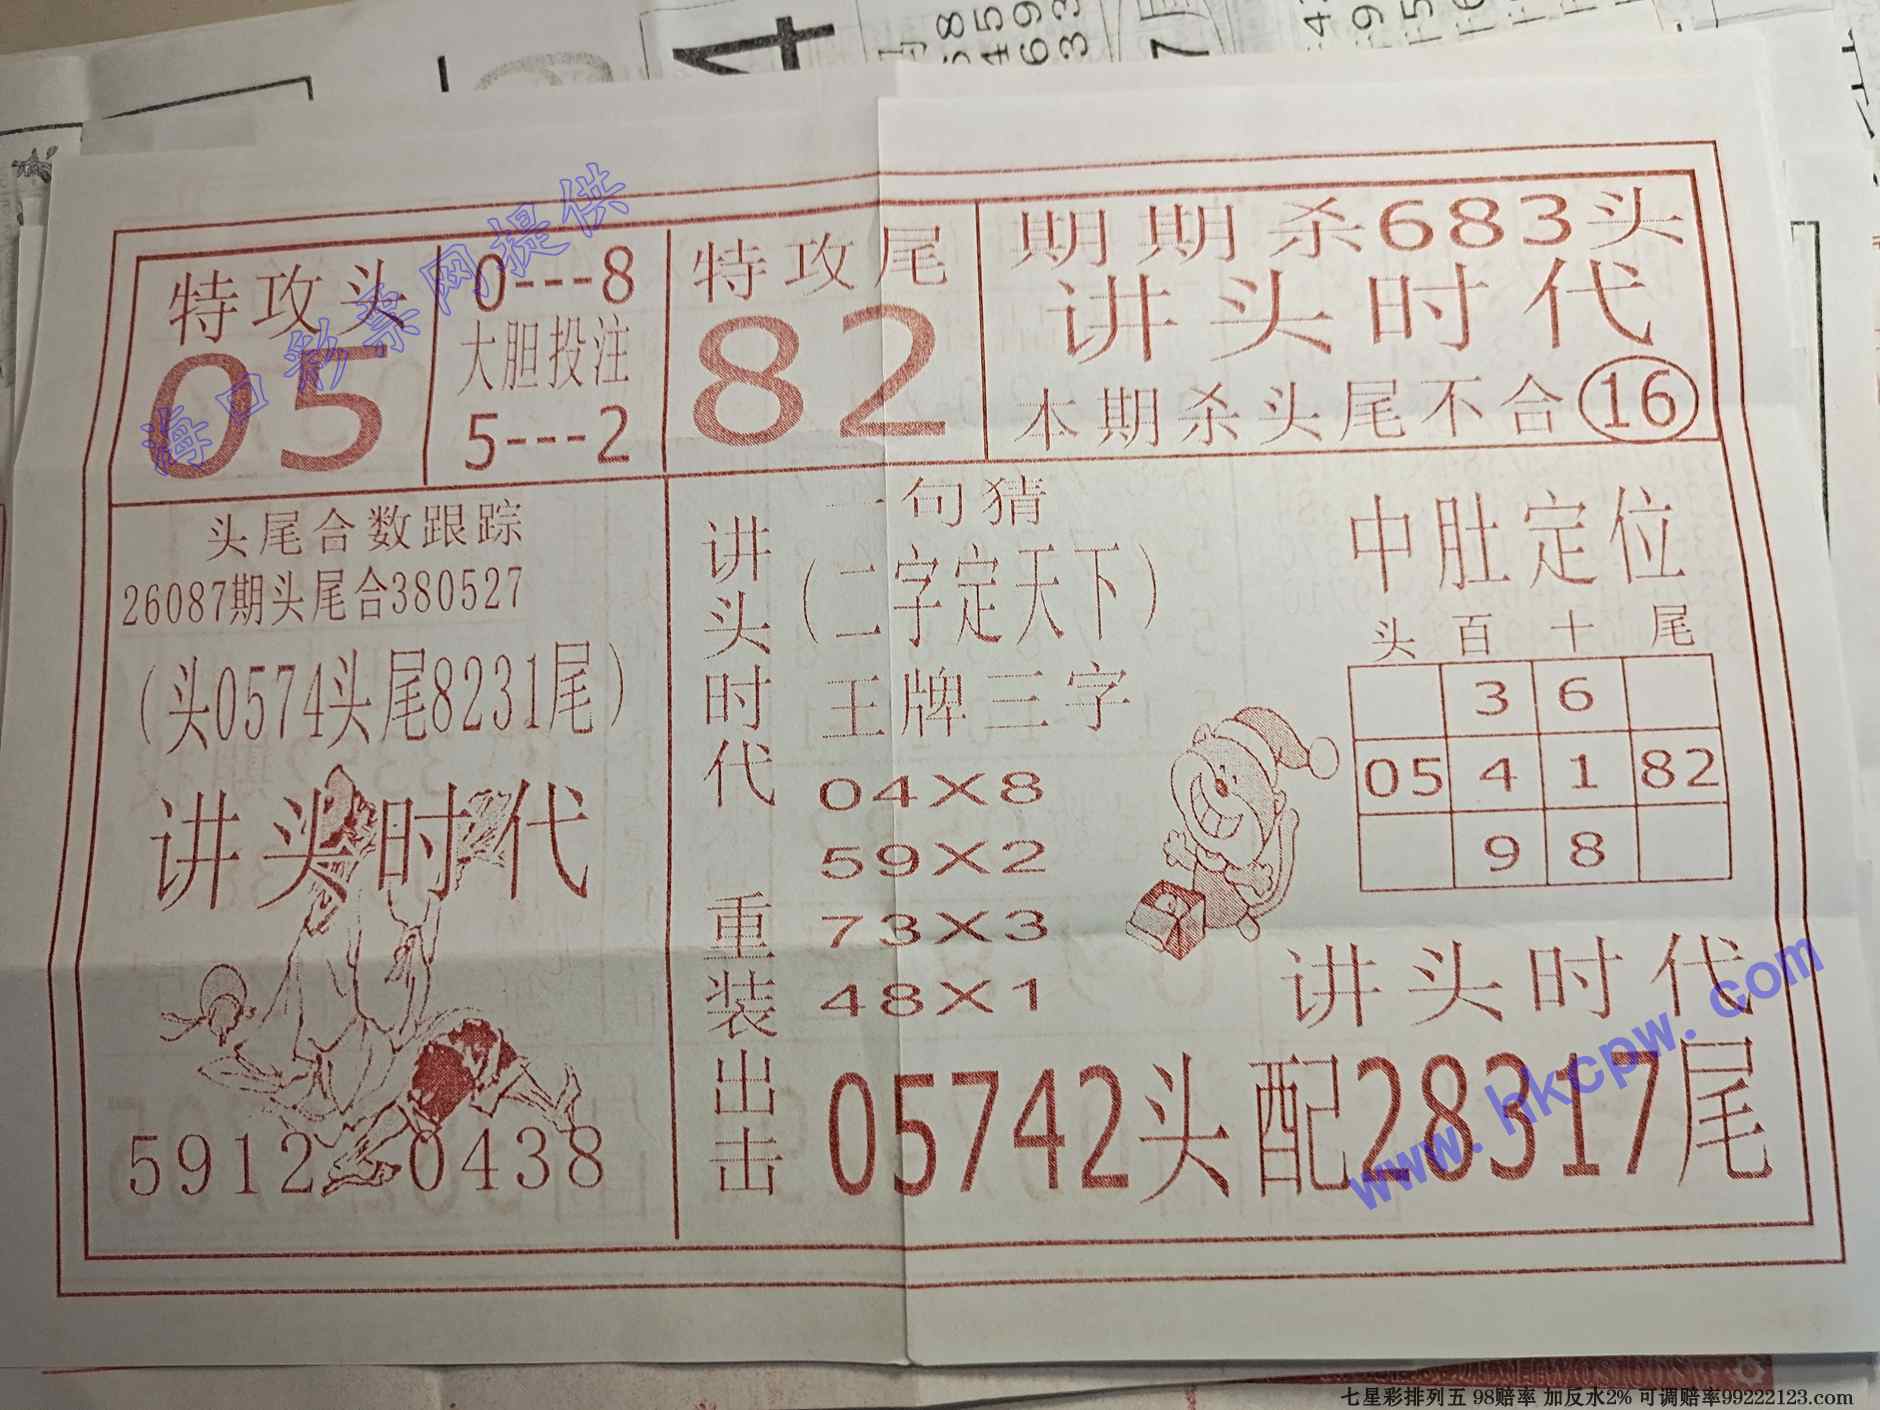 特攻头
05
0---8
大胆投注
5---2
特攻尾
82
期期杀683头
讲头时代
本期杀头尾不合16
头尾合数跟踪
26087期头尾合380527
(头0574头尾8231尾)
讲头时代
5912 0438
讲头时代 重装出击
一句猜
(二字定天下)
王牌三字
04X8
59X2
73X3
48X1
中肚定位
头 百 十 尾
3 6
05 4 1 82
9 8
讲头时代
05742头配28317尾
海口彩票网提供
www.hkcpw.com
七星彩排列五 98赔率 加反水2% 可调赔率99222123.com